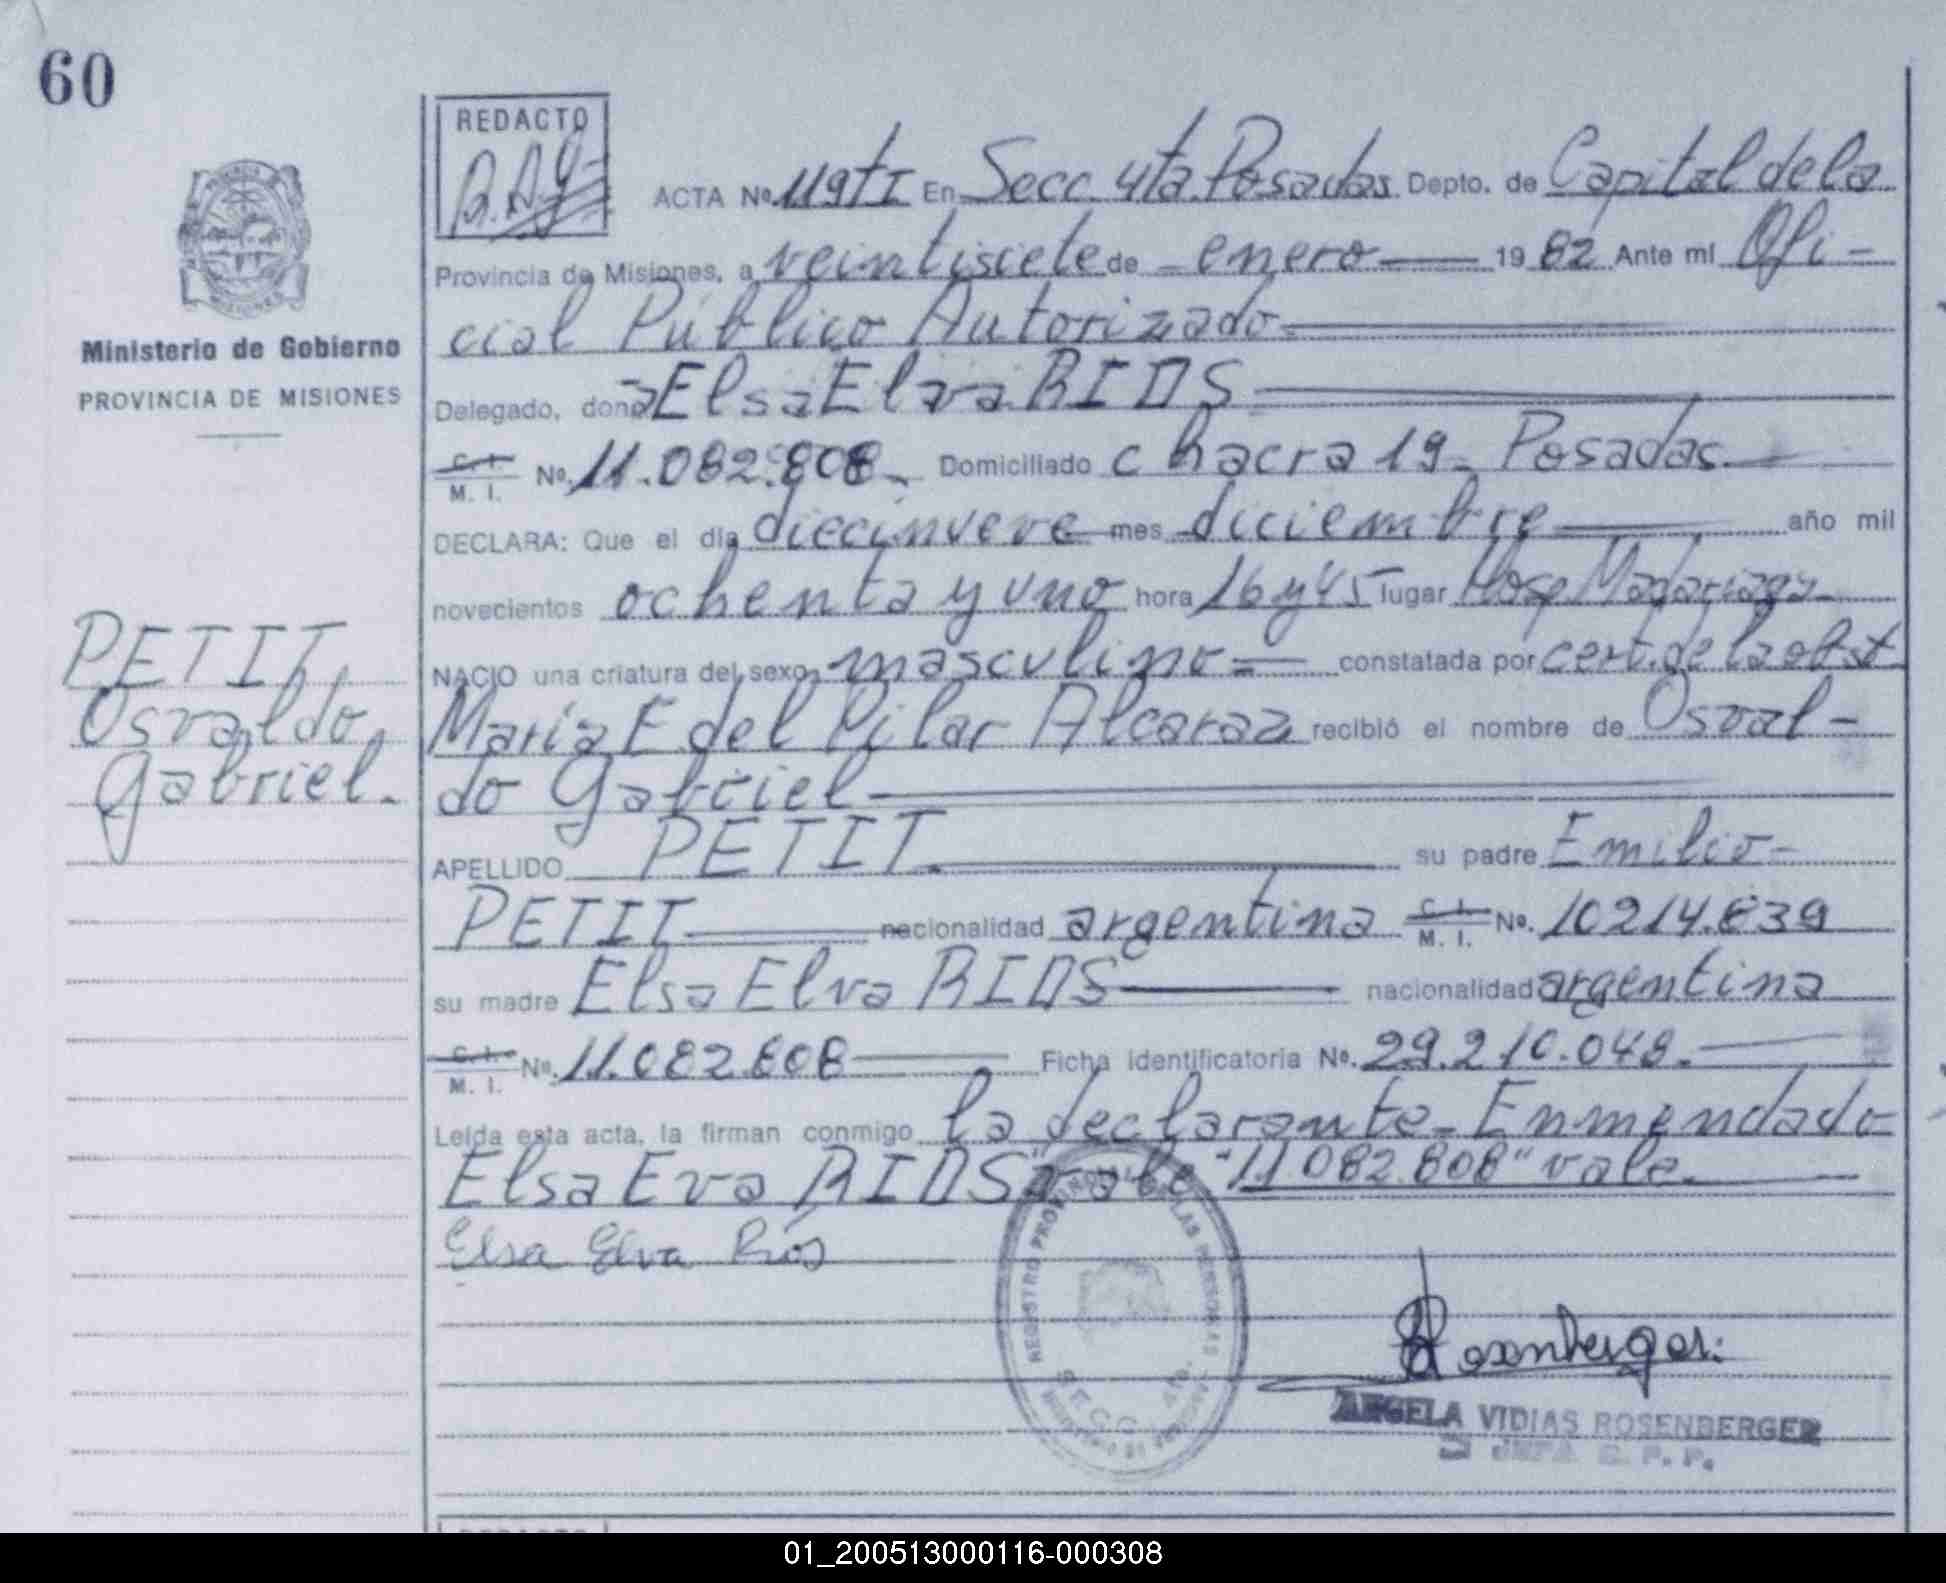 60
REDACTO
ACTA Nº 119 t I En Secc. 4ta. Posadas Depto. de Capital de la
Provincia de Misiones, a veintisiete de enero 19 82 Ante mí Ofi-
cial Público Autorizado
Ministerio de Gobierno
PROVINCIA DE MISIONES
Delegado, don a Elsa Elva RIOS
C. I. M. I. Nº. 11.082.808 Domiciliado chacra 19 - Posadas
DECLARA: Que el día diecinueve mes diciembre año mil
novecientos ochenta y uno hora 16 y 45 lugar Hosp Madariaga
NACIO una criatura del sexo masculino constatada por cert. de la obst
PETIT,
Osvaldo
Gabriel.
Maria E. del Pilar Alcaraz recibió el nombre de Osval-
do Gabriel
APELLIDO PETIT su padre Emilio
PETIT nacionalidad argentina C. I. M. I. Nº. 10214.839
su madre Elsa Elva RIOS nacionalidad argentina
C. I. M. I. Nº. 11.082.808 Ficha identificatoria Nº. 29.210.048.
Leída esta acta, la firman conmigo la declarante - Enmendado
Elsa Eva RIOS vale "11.082.808" vale.
Elsa Elva Ríos
REGISTRO PROVINCIAL DE LAS PERSONAS
SECC. 4ta.
Rosenberger
ANGELA VIDIAS ROSENBERGER
JEFA
01_200513000116-000308